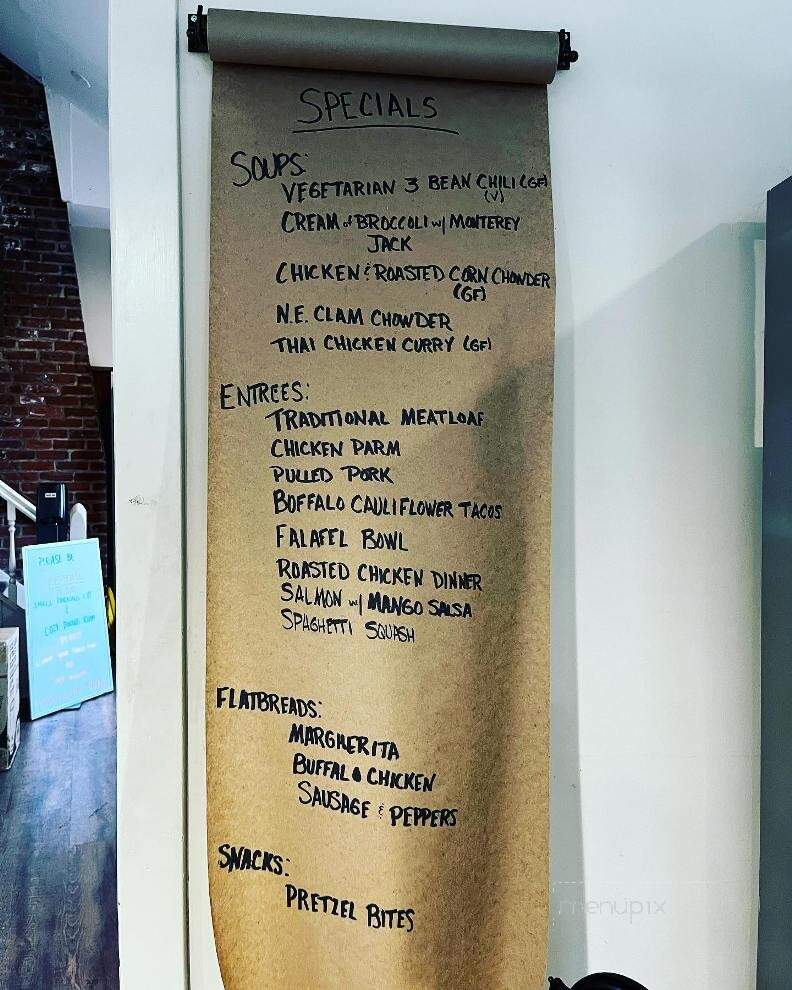 SPECIALS
SOUPS:
VEGETARIAN 3 BEAN CHILI (GF)
(V)
CREAM of BROCCOLI w/ MONTEREY
JACK
CHICKEN & ROASTED CORN CHOWDER
(GF)
N.E. CLAM CHOWDER
THAI CHICKEN CURRY (GF)
ENTREES:
TRADITIONAL MEATLOAF
CHICKEN PARM
PULLED PORK
BUFFALO CAULIFLOWER TACOS
FALAFEL BOWL
ROASTED CHICKEN DINNER
SALMON w/ MANGO SALSA
SPAGHETTI SQUASH
FLATBREADS:
MARGHERITA
BUFFALO CHICKEN
SAUSAGE & PEPPERS
SNACKS:
PRETZEL BITES
PLEASE BE
SMALL PARKING LOT
&
COZY DINING ROOM
menupix